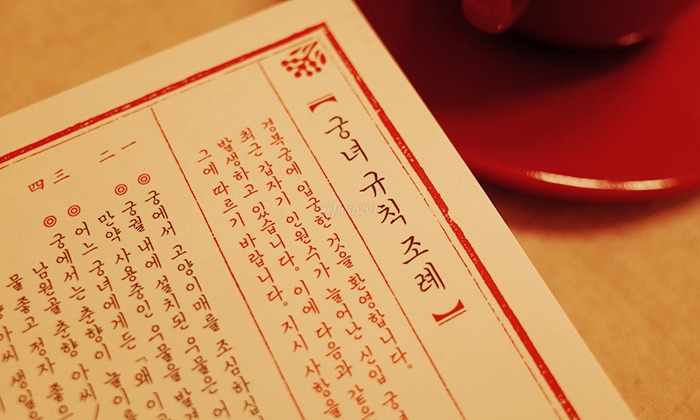 【궁녀 규칙 조례】
경복궁에 입궁한 것을 환영합니다.
최근 갑자기 인원수가 늘어난 신입 궁녀
발생하고 있습니다. 이에 다음과 같은
그에 따르기 바랍니다. 지시 사항을
一 ◎ 궁에서 고양이매를 조심하십
二 ◎ 궁궐 내에 설치된 우물은 어
만약 사용중인 우물을 발견
三 ◎ 어느 궁녀에게든 「왜 이
궁에서는 춘향이 놀이를
四 ◎ 남원골 춘향 아씨
물 좋고 정자 좋은
아씨 생일